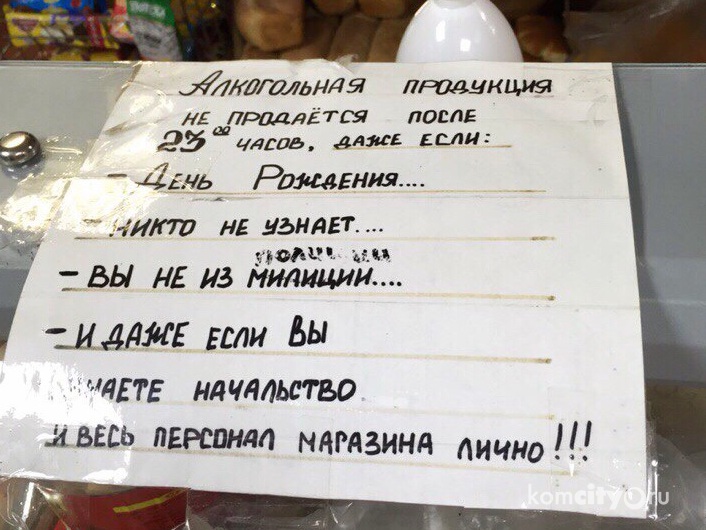 Алкогольная продукция
не продаётся после
23⁰⁰ часов, даже если:
- День Рождения....
- никто не узнает....
полиции
- вы не из милиции....
- и даже если Вы
знаете начальство
и весь персонал магазина лично!!!
komcity.ru